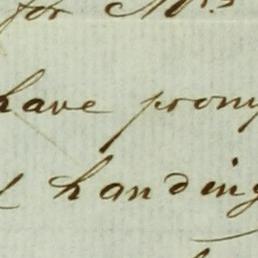 for Mrs
have promp
handing